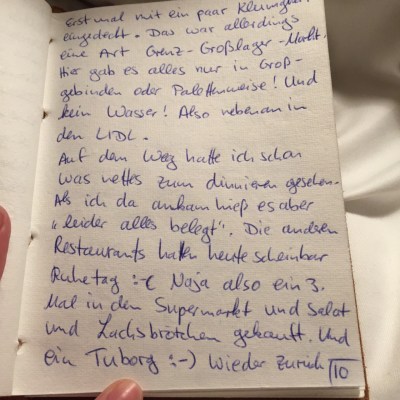 Erst mal mit ein paar Kleinigkei
eingedeckt. Das war allerdings
eine Art Grenz-Großlager-Markt.
Hier gab es alles nur in Groß-
gebinden oder Palettenweise! Und
kein Wasser! Also nebenan in
den LIDL.
Auf dem Weg hatte ich schon
was nettes zum dinnieren gesehen.
Als ich da ankam hieß es aber
"leider alles belegt". Die anderen
Restaurants hatten heute scheinbar
Ruhetag :-( Naja also ein 3.
Mal in den Supermarkt und Salat
und Lachsbrötchen gekauft. Und
ein Tuborg :-) Wieder zurück
10